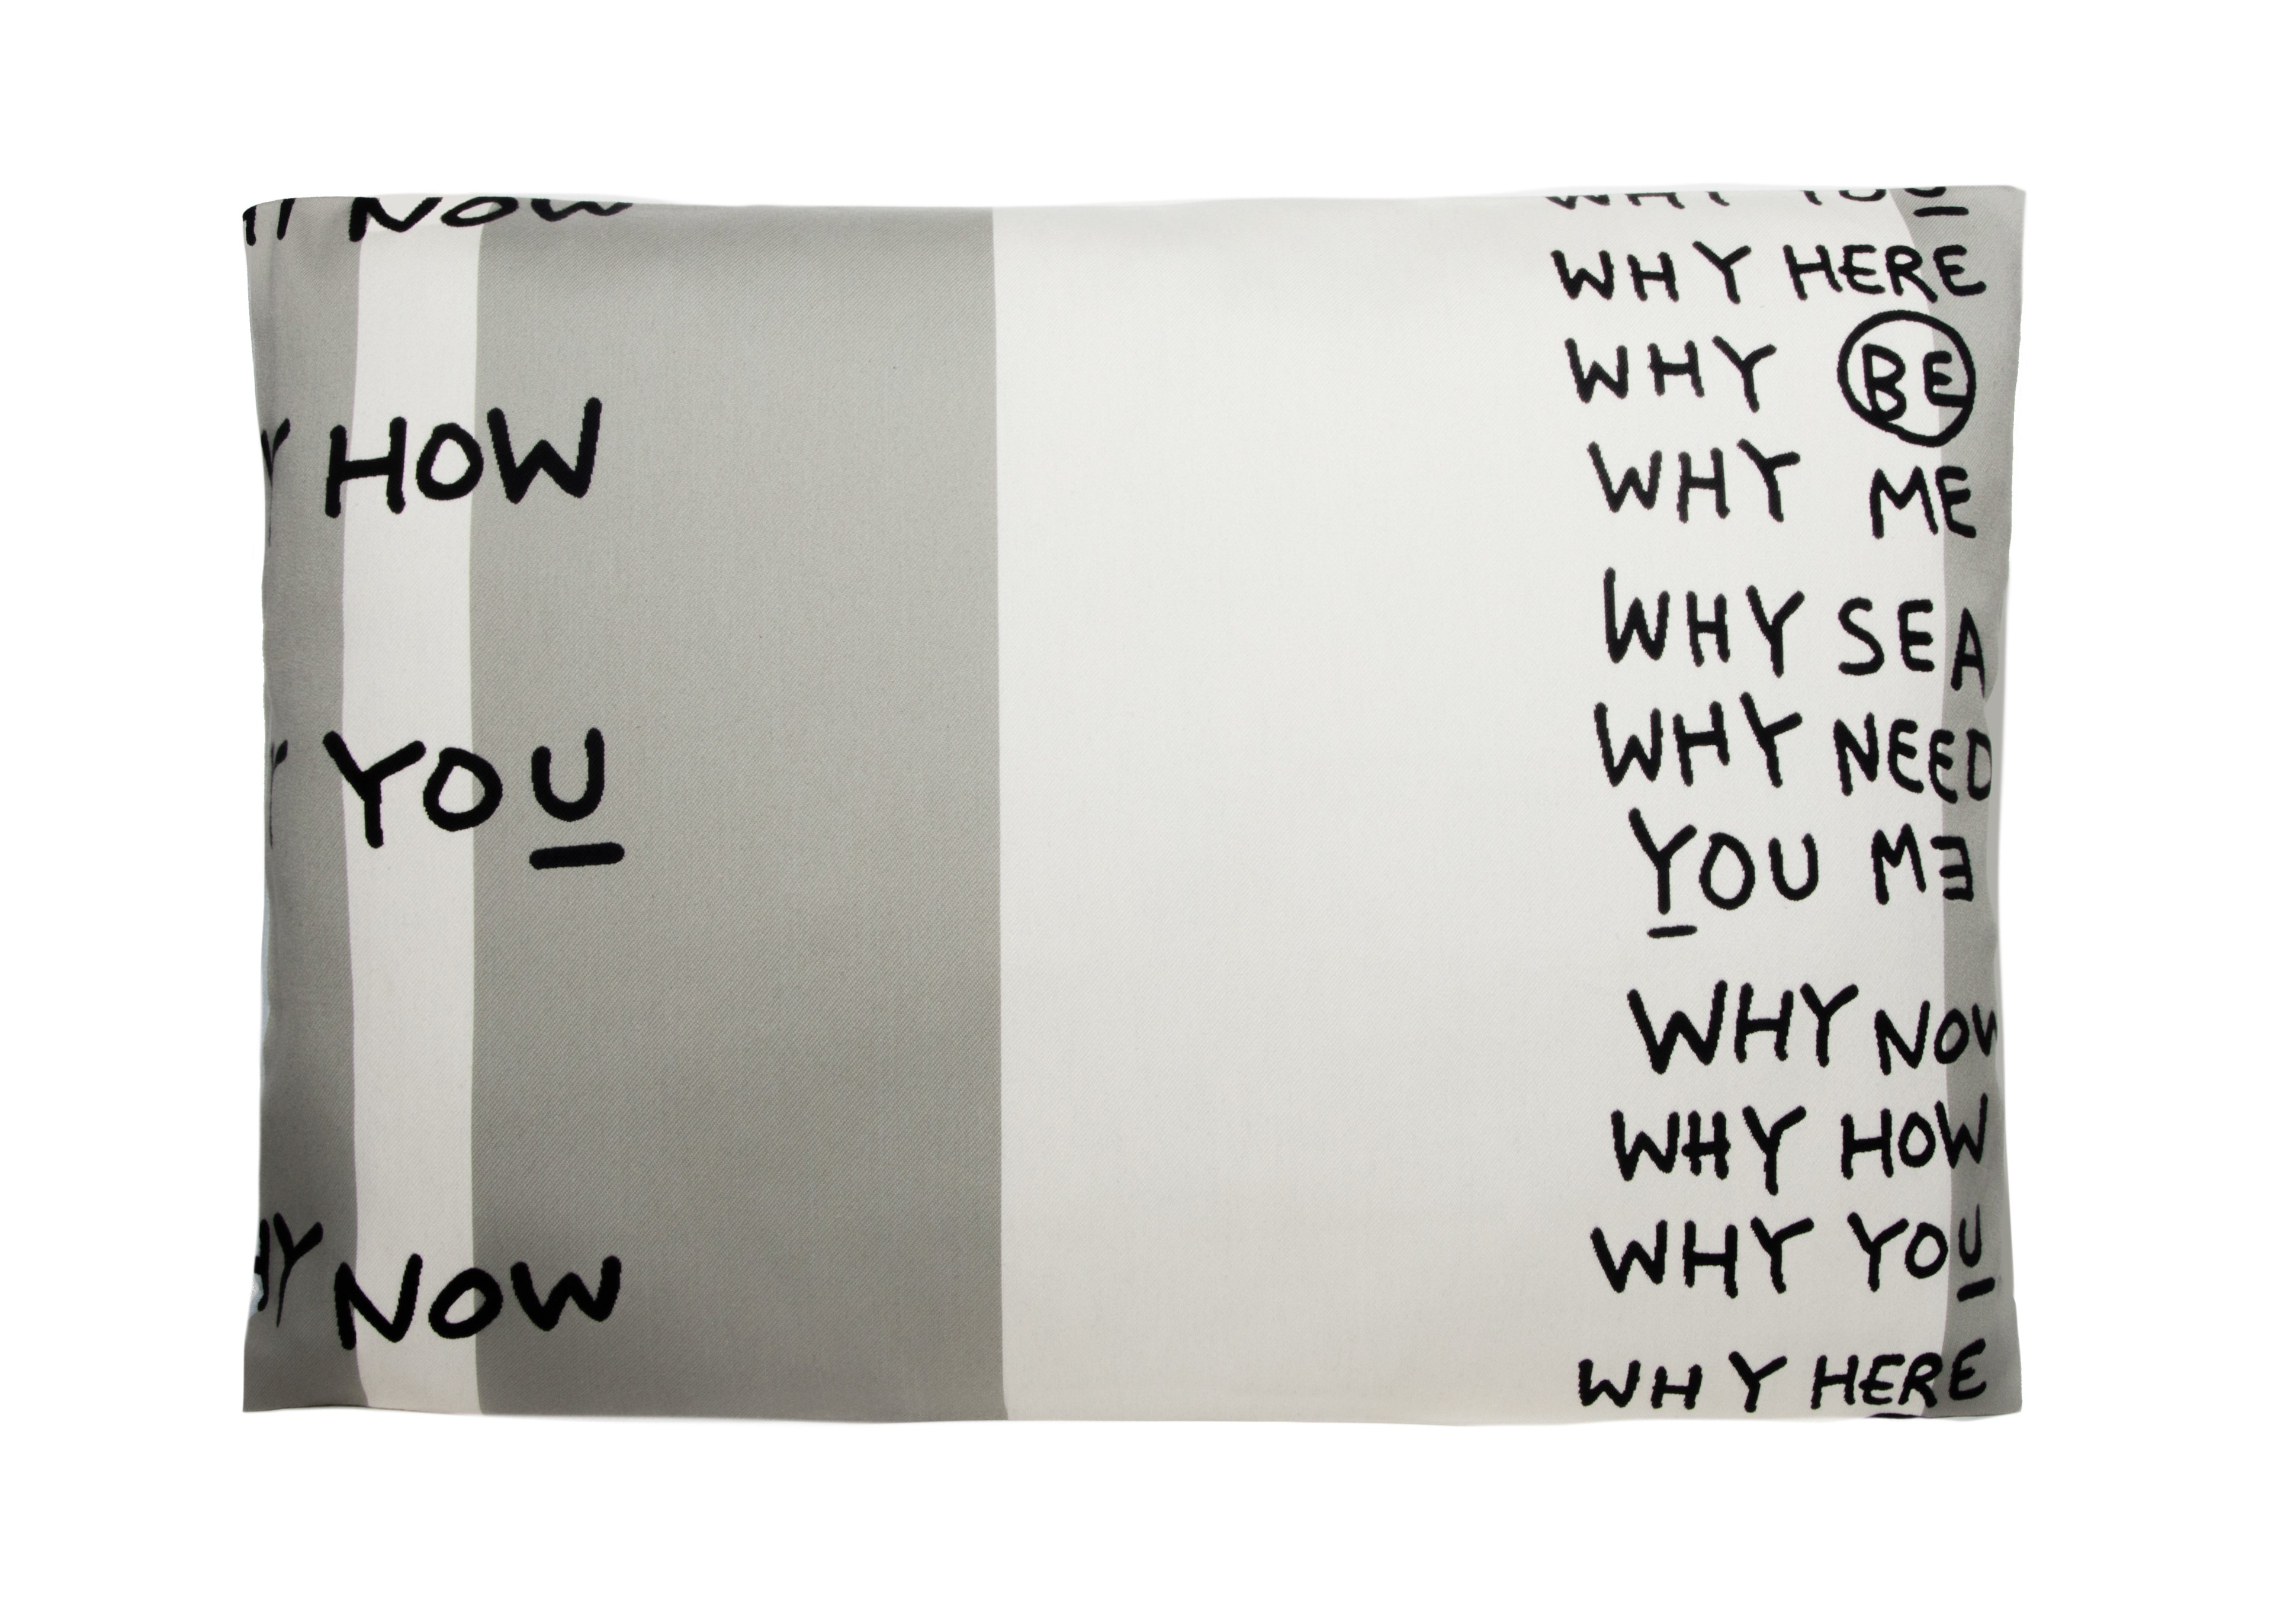 NOW
HOW
YOU
HY NOW
WHY YOU
WHY HERE
WHY BE
WHY ME
WHY SEA
WHY NEED
YOU ME
WHY NOW
WHY HOW
WHY YOU
WHY HERE